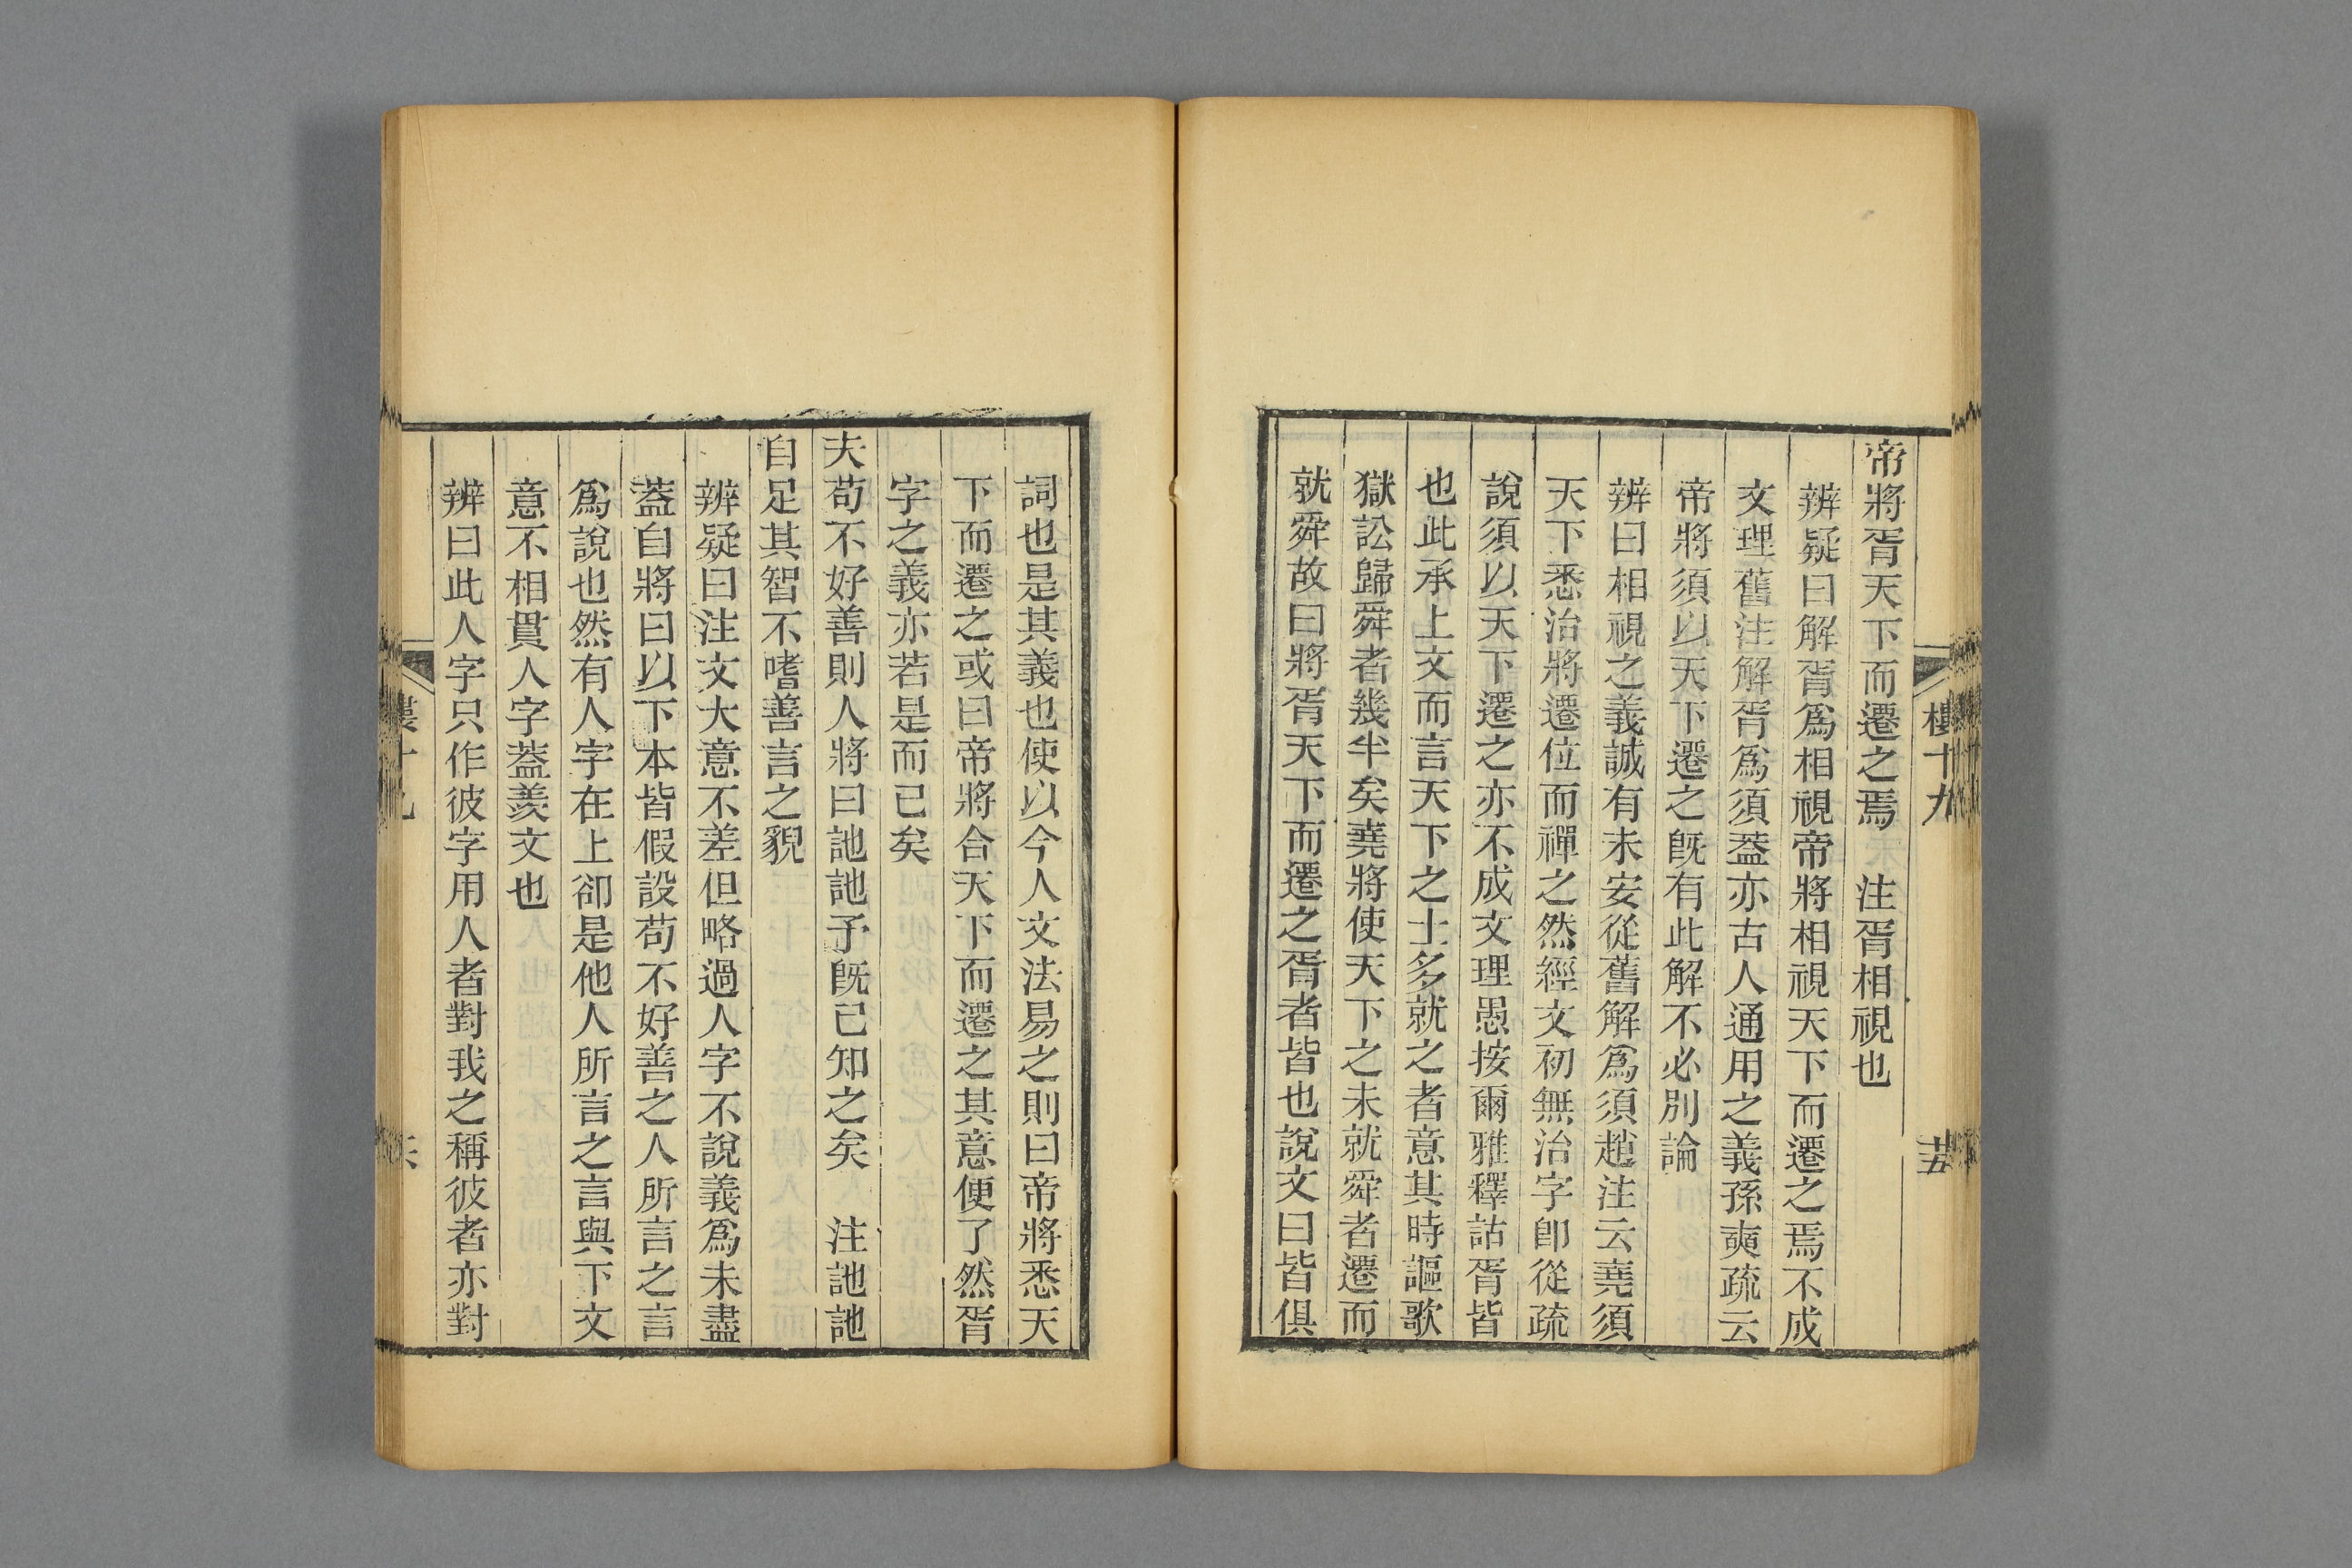 樓十九
十五
帝將胥天下而遷之焉　注胥相視也
辨疑曰解胥爲相視帝將相視天下而遷之焉不成
文理舊注解胥爲須葢亦古人通用之義孫奭疏云
帝將須以天下遷之旣有此解不必別論
辨曰相視之義誠有未安從舊解爲須趙注云堯須
天下悉治將遷位而禪之然經文初無治字卽從疏
說須以天下遷之亦不成文理愚按爾雅釋詁胥皆
也此承上文而言天下之士多就之者意其時謳歌
獄訟歸舜者幾半矣堯將使天下之未就舜者遷而
就舜故曰將胥天下而遷之胥者皆也說文曰皆俱
詞也是其義也使以今人文法易之則曰帝將悉天
下而遷之或曰帝將合天下而遷之其意便了然胥
字之義亦若是而已矣
夫苟不好善則人將曰訑訑予旣已知之矣　注訑訑
自足其智不嗜善言之貌
辨疑曰注文大意不差但略過人字不說義爲未盡
葢自將曰以下本皆假設苟不好善之人所言之言
爲說也然有人字在上卻是他人所言之言與下文
意不相貫人字葢羨文也
辨曰此人字只作彼字用人者對我之稱彼者亦對